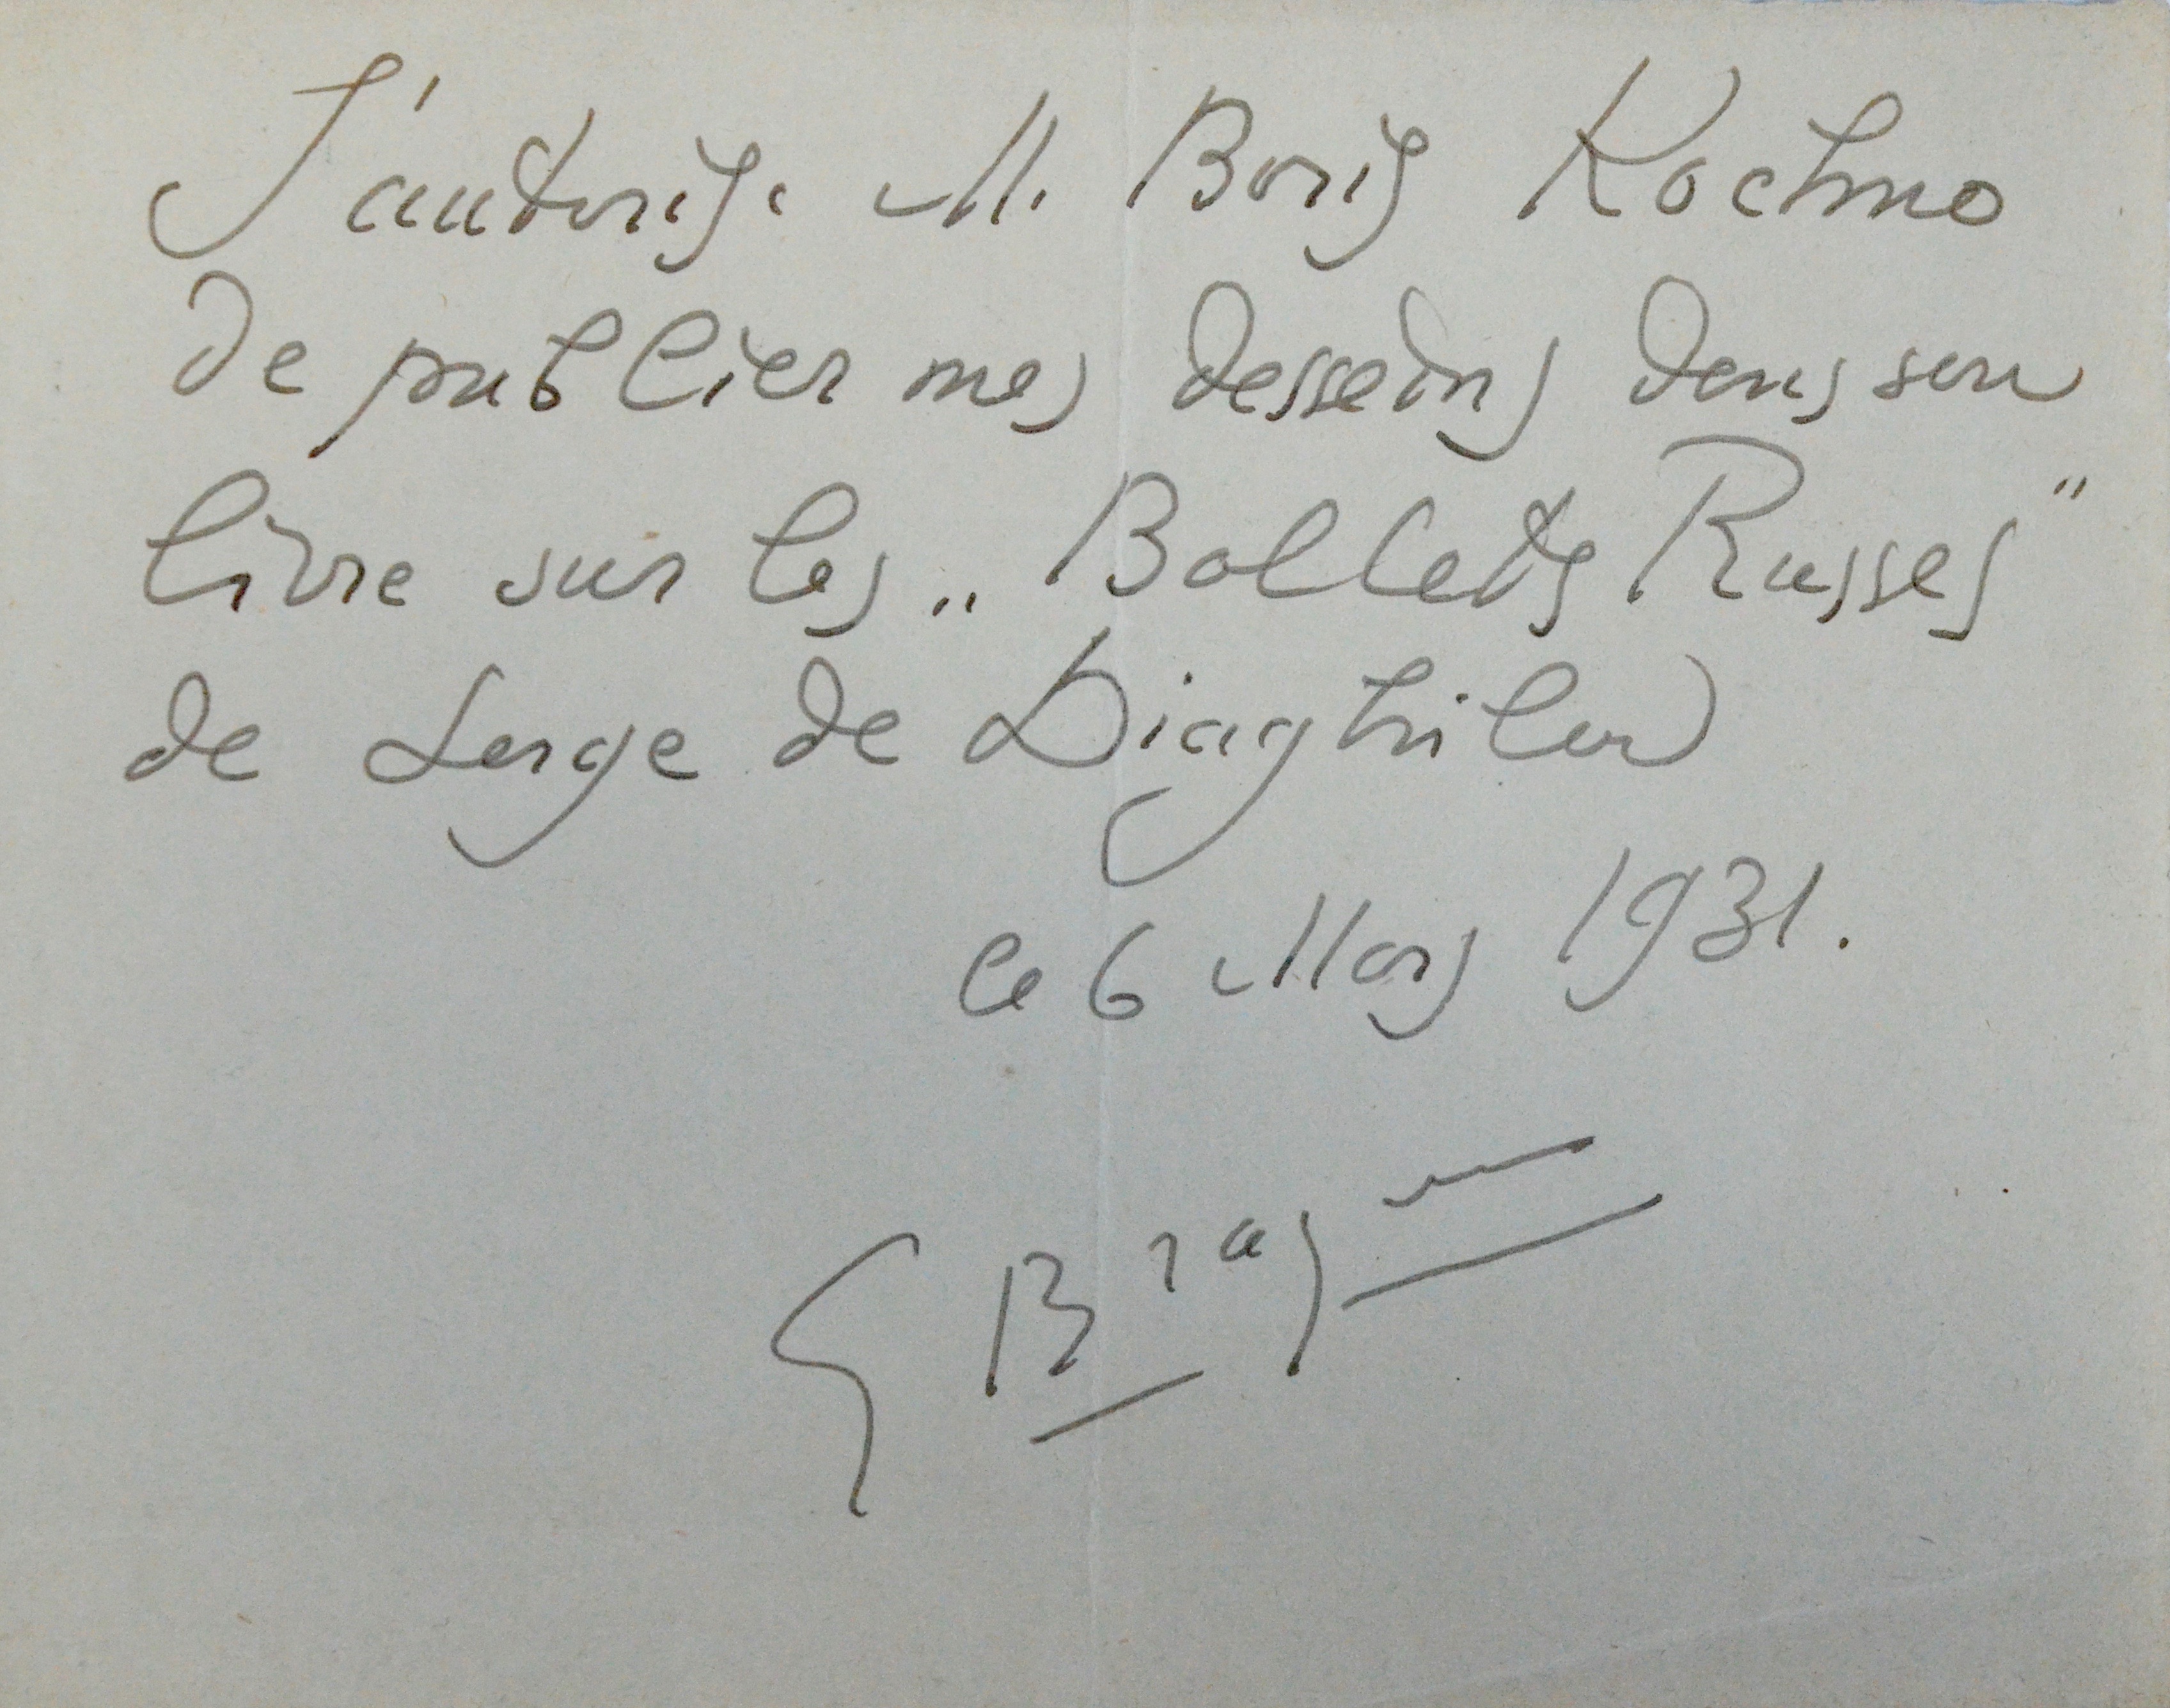 J'autorise M. Boris Kochno
de publier mes desseins dans son
livre sur les „Ballets Russes"
de Serge de Diaghilew
le 6 Mars 1931.
G Braque